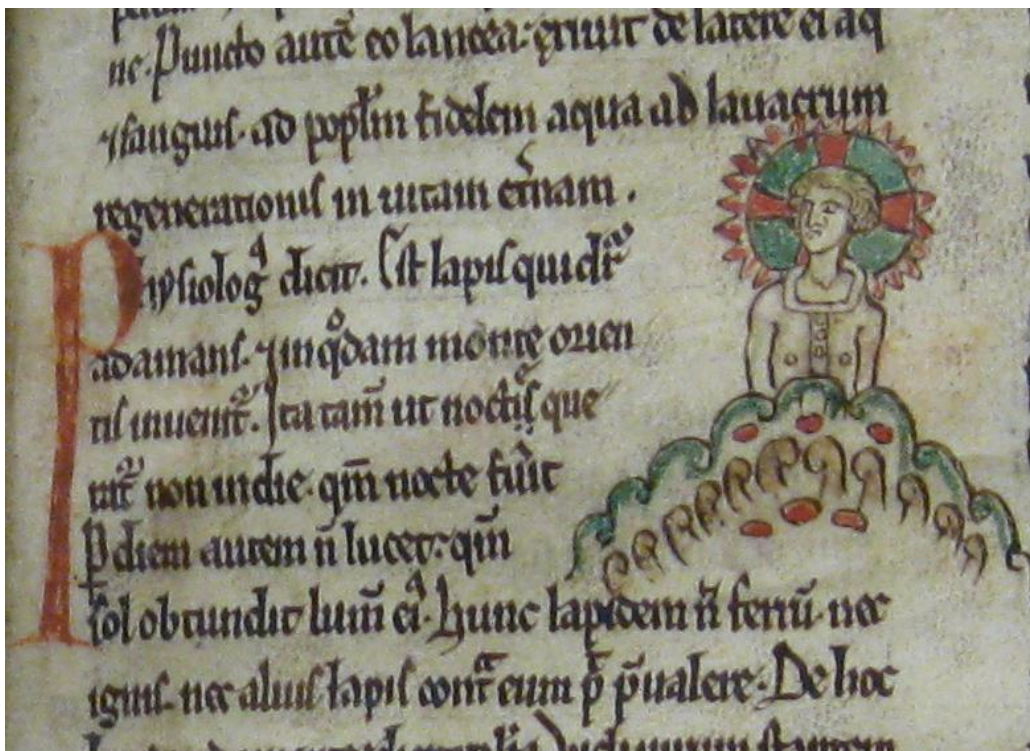 ne. Puncto autē eo lancea. exiuit de latere ei aq
⁊ sanguis. ad popl̅m fidelem aqua ab lauacrum
regenerationis in uitam et̅nam.
Physiologꝰ dicit. Est lapis quidā
adamans. ⁊ in qͦdam monte orien
tis inuenit᷑. Ita tam̅ ut noctis que
rat᷑ non in die. qm̅ nocte
ꝑ diem autem n̅ lucet. qm̅
sol obtundit lum̅ eiꝰ. Hunc lapidem n̅ ferrū. nec
ignis. nec alius lapis contᵃ eum p̅ p̅ualere. De hoc